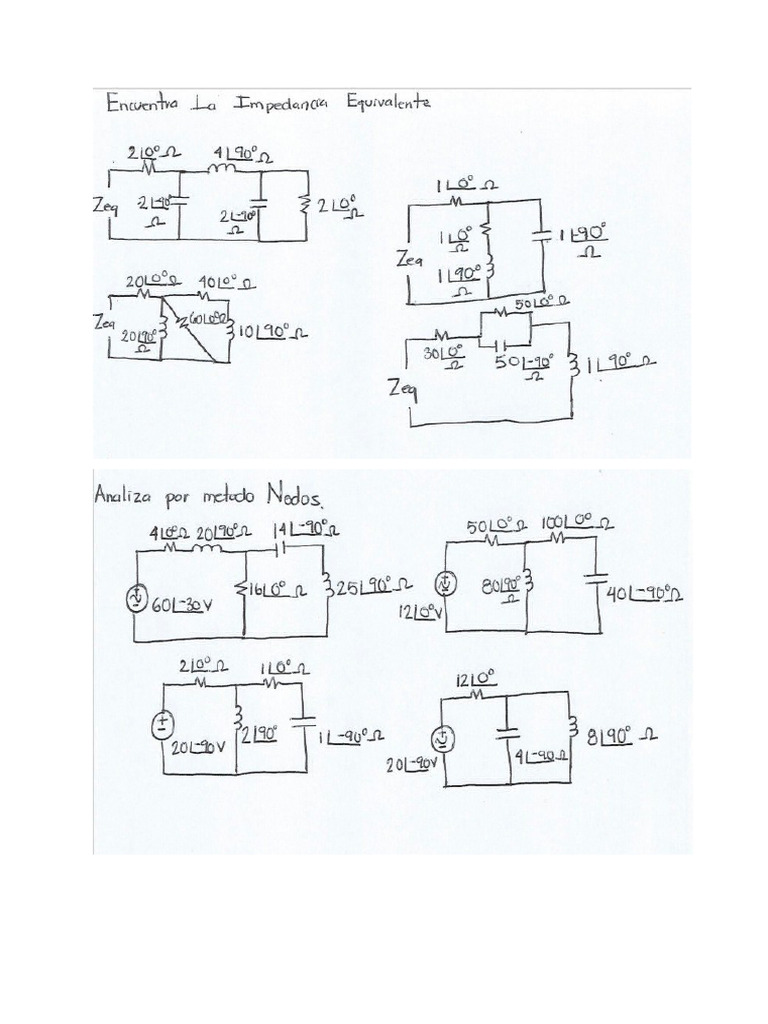 Encuentra La Impedancia Equivalente
2∠0° Ω
4∠90° Ω
Zeq
2∠-90°
Ω
2∠-90°
Ω
2∠0°
Ω
1∠0° Ω
Zeq
1∠0°
Ω
1∠90°
Ω
1∠-90°
Ω
20∠0° Ω
40∠0° Ω
Zeq
20∠90°
Ω
60∠0° Ω
10∠90° Ω
50∠0° Ω
30∠0°
Ω
50∠-90°
Ω
1∠90° Ω
Zeq
Analiza por metodo Nodos.
4∠0° Ω
20∠90° Ω
14∠-90° Ω
60∠-30 V
16∠0° Ω
25∠90° Ω
50∠0° Ω
100∠0° Ω
12∠0° V
80∠90°
Ω
40∠-90° Ω
2∠0° Ω
1∠0° Ω
20∠-90 V
2∠90°
1∠-90° Ω
12∠0°
20∠-90 V
4∠-90 Ω
8∠90° Ω